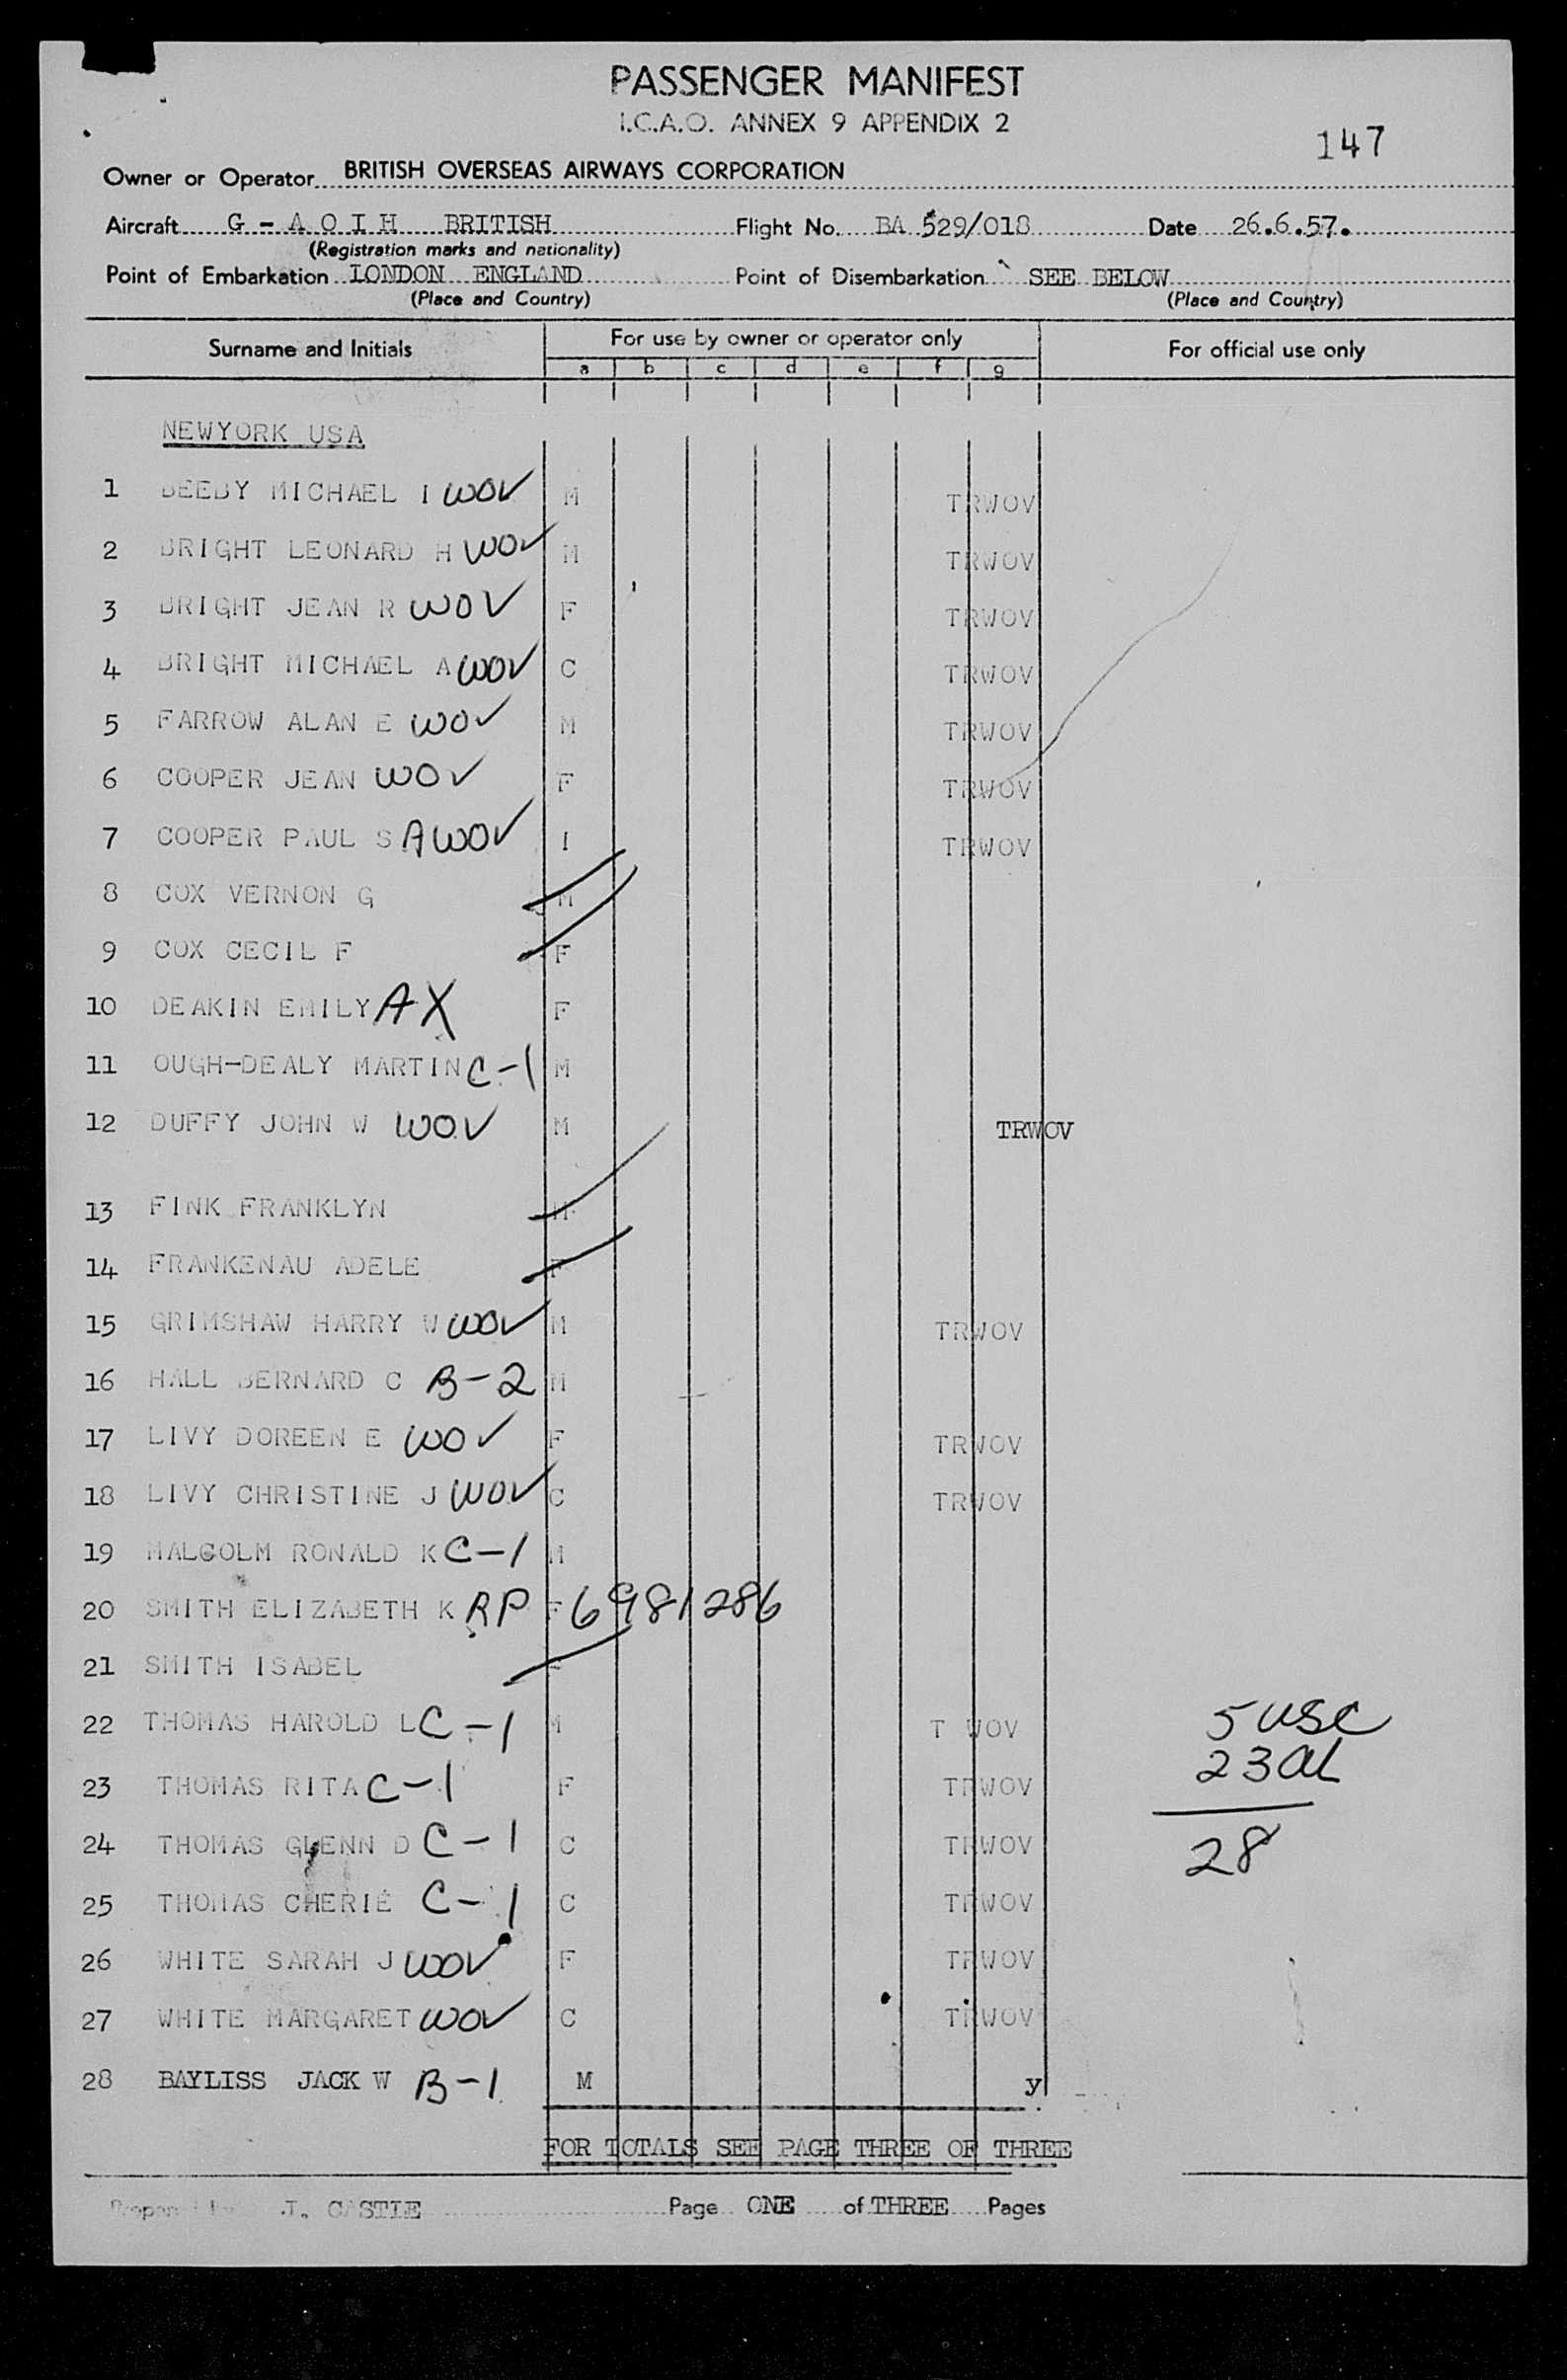 PASSENGER MANIFEST
I.C.A.O. ANNEX 9 APPENDIX 2
147
Owner or Operator BRITISH OVERSEAS AIRWAYS CORPORATION
Aircraft G - A O I H BRITISH Flight No. BA 529/018 Date 26.6.57.
(Registration marks and nationality)
Point of Embarkation LONDON ENGLAND Point of Disembarkation SEE BELOW
(Place and Country) (Place and Country)
Surname and Initials For use by owner or operator only For official use only
a b c d e f g
NEWYORK USA
1 BEEBY MICHAEL I WOV M TRWOV
2 BRIGHT LEONARD H WOV M TRWOV
3 BRIGHT JEAN R WOV F TRWOV
4 BRIGHT MICHAEL A WOV C TRWOV
5 FARROW ALAN E WOV M TRWOV
6 COOPER JEAN WOV F TRWOV
7 COOPER PAUL S A WOV I TRWOV
8 COX VERNON G M
9 COX CECIL F F
10 DEAKIN EMILY AX F
11 OUGH-DEALY MARTIN C-1 M
12 DUFFY JOHN W WOV M TRWOV
13 FINK FRANKLYN M
14 FRANKENAU ADELE F
15 GRIMSHAW HARRY W WOV M TRWOV
16 HALL BERNARD C B-2 M
17 LIVY DOREEN E WOV F TRWOV
18 LIVY CHRISTINE J WOV C TRWOV
19 MALCOLM RONALD K C-1 M
20 SMITH ELIZABETH K RP F 6981286
21 SMITH ISABEL
22 THOMAS HAROLD L C-1 M T WOV 5 USC
23 al
23 THOMAS RITA C-1 F TRWOV
24 THOMAS GLENN D C-1 C TRWOV 28
25 THOMAS CHERIE C-1 C TRWOV
26 WHITE SARAH J WOV F TRWOV
27 WHITE MARGARET WOV C TRWOV
28 BAYLISS JACK W B-1 M y
FOR TOTALS SEE PAGE THREE OF THREE
Prepared by J. CASTLE Page ONE of THREE Pages